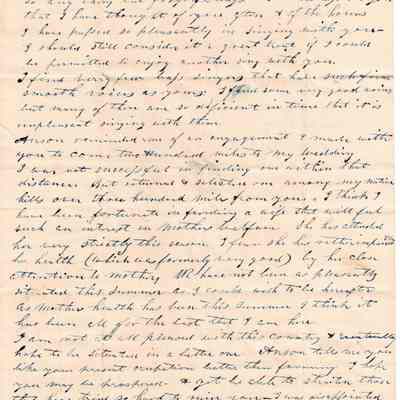 that I have thought of you often & of the hours
I have passed so pleasantly in singing with you
I should still consider it a great treat if I could
be permitted to enjoy another sing with you.
I find very few singers that have such fine
smooth voices as yours I find some very good voices
but many of them are so deficient in time that it is
unpleasant singing with them
Anson reminded me of an engagement I made with
you to come two Hundred miles to my Wedding
I was not successful in finding one within that
distance But returned & selected one among my native
hills over three hundred miles from yours. I think I
have been fortunate in finding a wife that will feel
such an interest in Mothers welfare She has attended
her very strictly this season I fear she has rather impaired
her health (which was formerly very good) by her close
attention to mother We have not been as pleasantly
situated this summer as I could wish to be
as Mothers health has been this summer I think it
has been all for the best that I am here
I am not at all pleased with this country & eventually
hope to be situated in a better one Anson tells me you
like your present occupation better than farming I hope
you may be prospered & be able to
so hard to I was disappointed